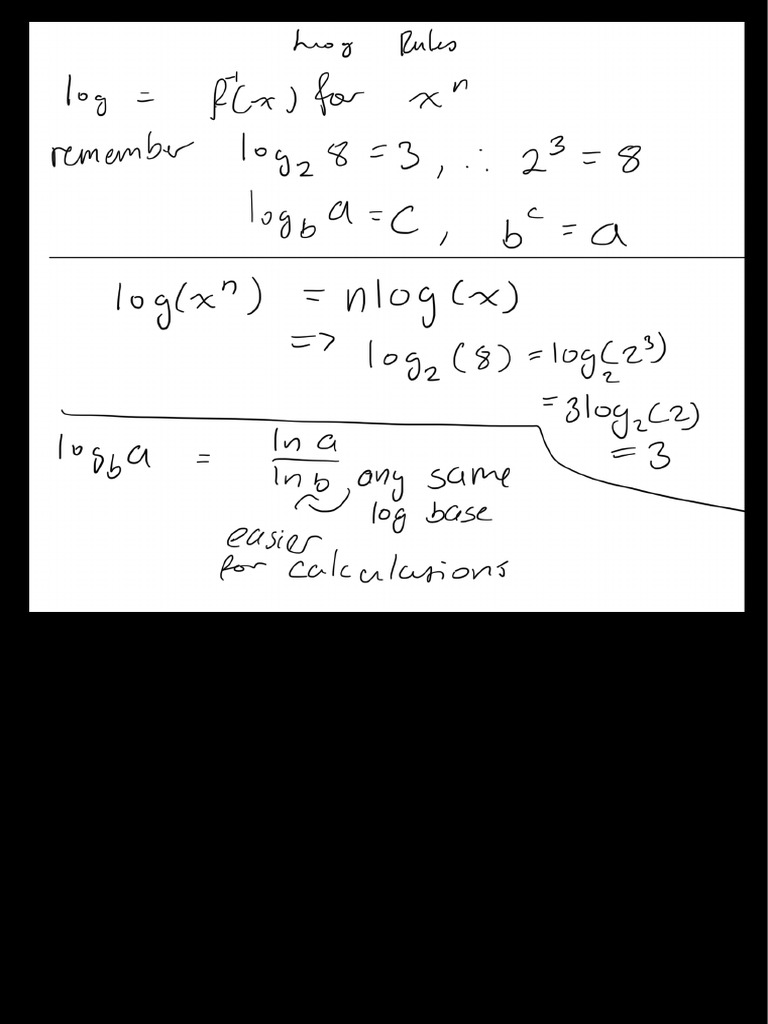 Log Rules
log = f⁻¹(x) for xⁿ
remember log₂ 8 = 3, ∴ 2³ = 8
log_b a = c, b^c = a
log(xⁿ) = nlog(x)
=> log₂(8) = log₂(2³)
= 3log₂(2)
= 3
log_b a = ln a / ln b any same
log base
easier
for calculations